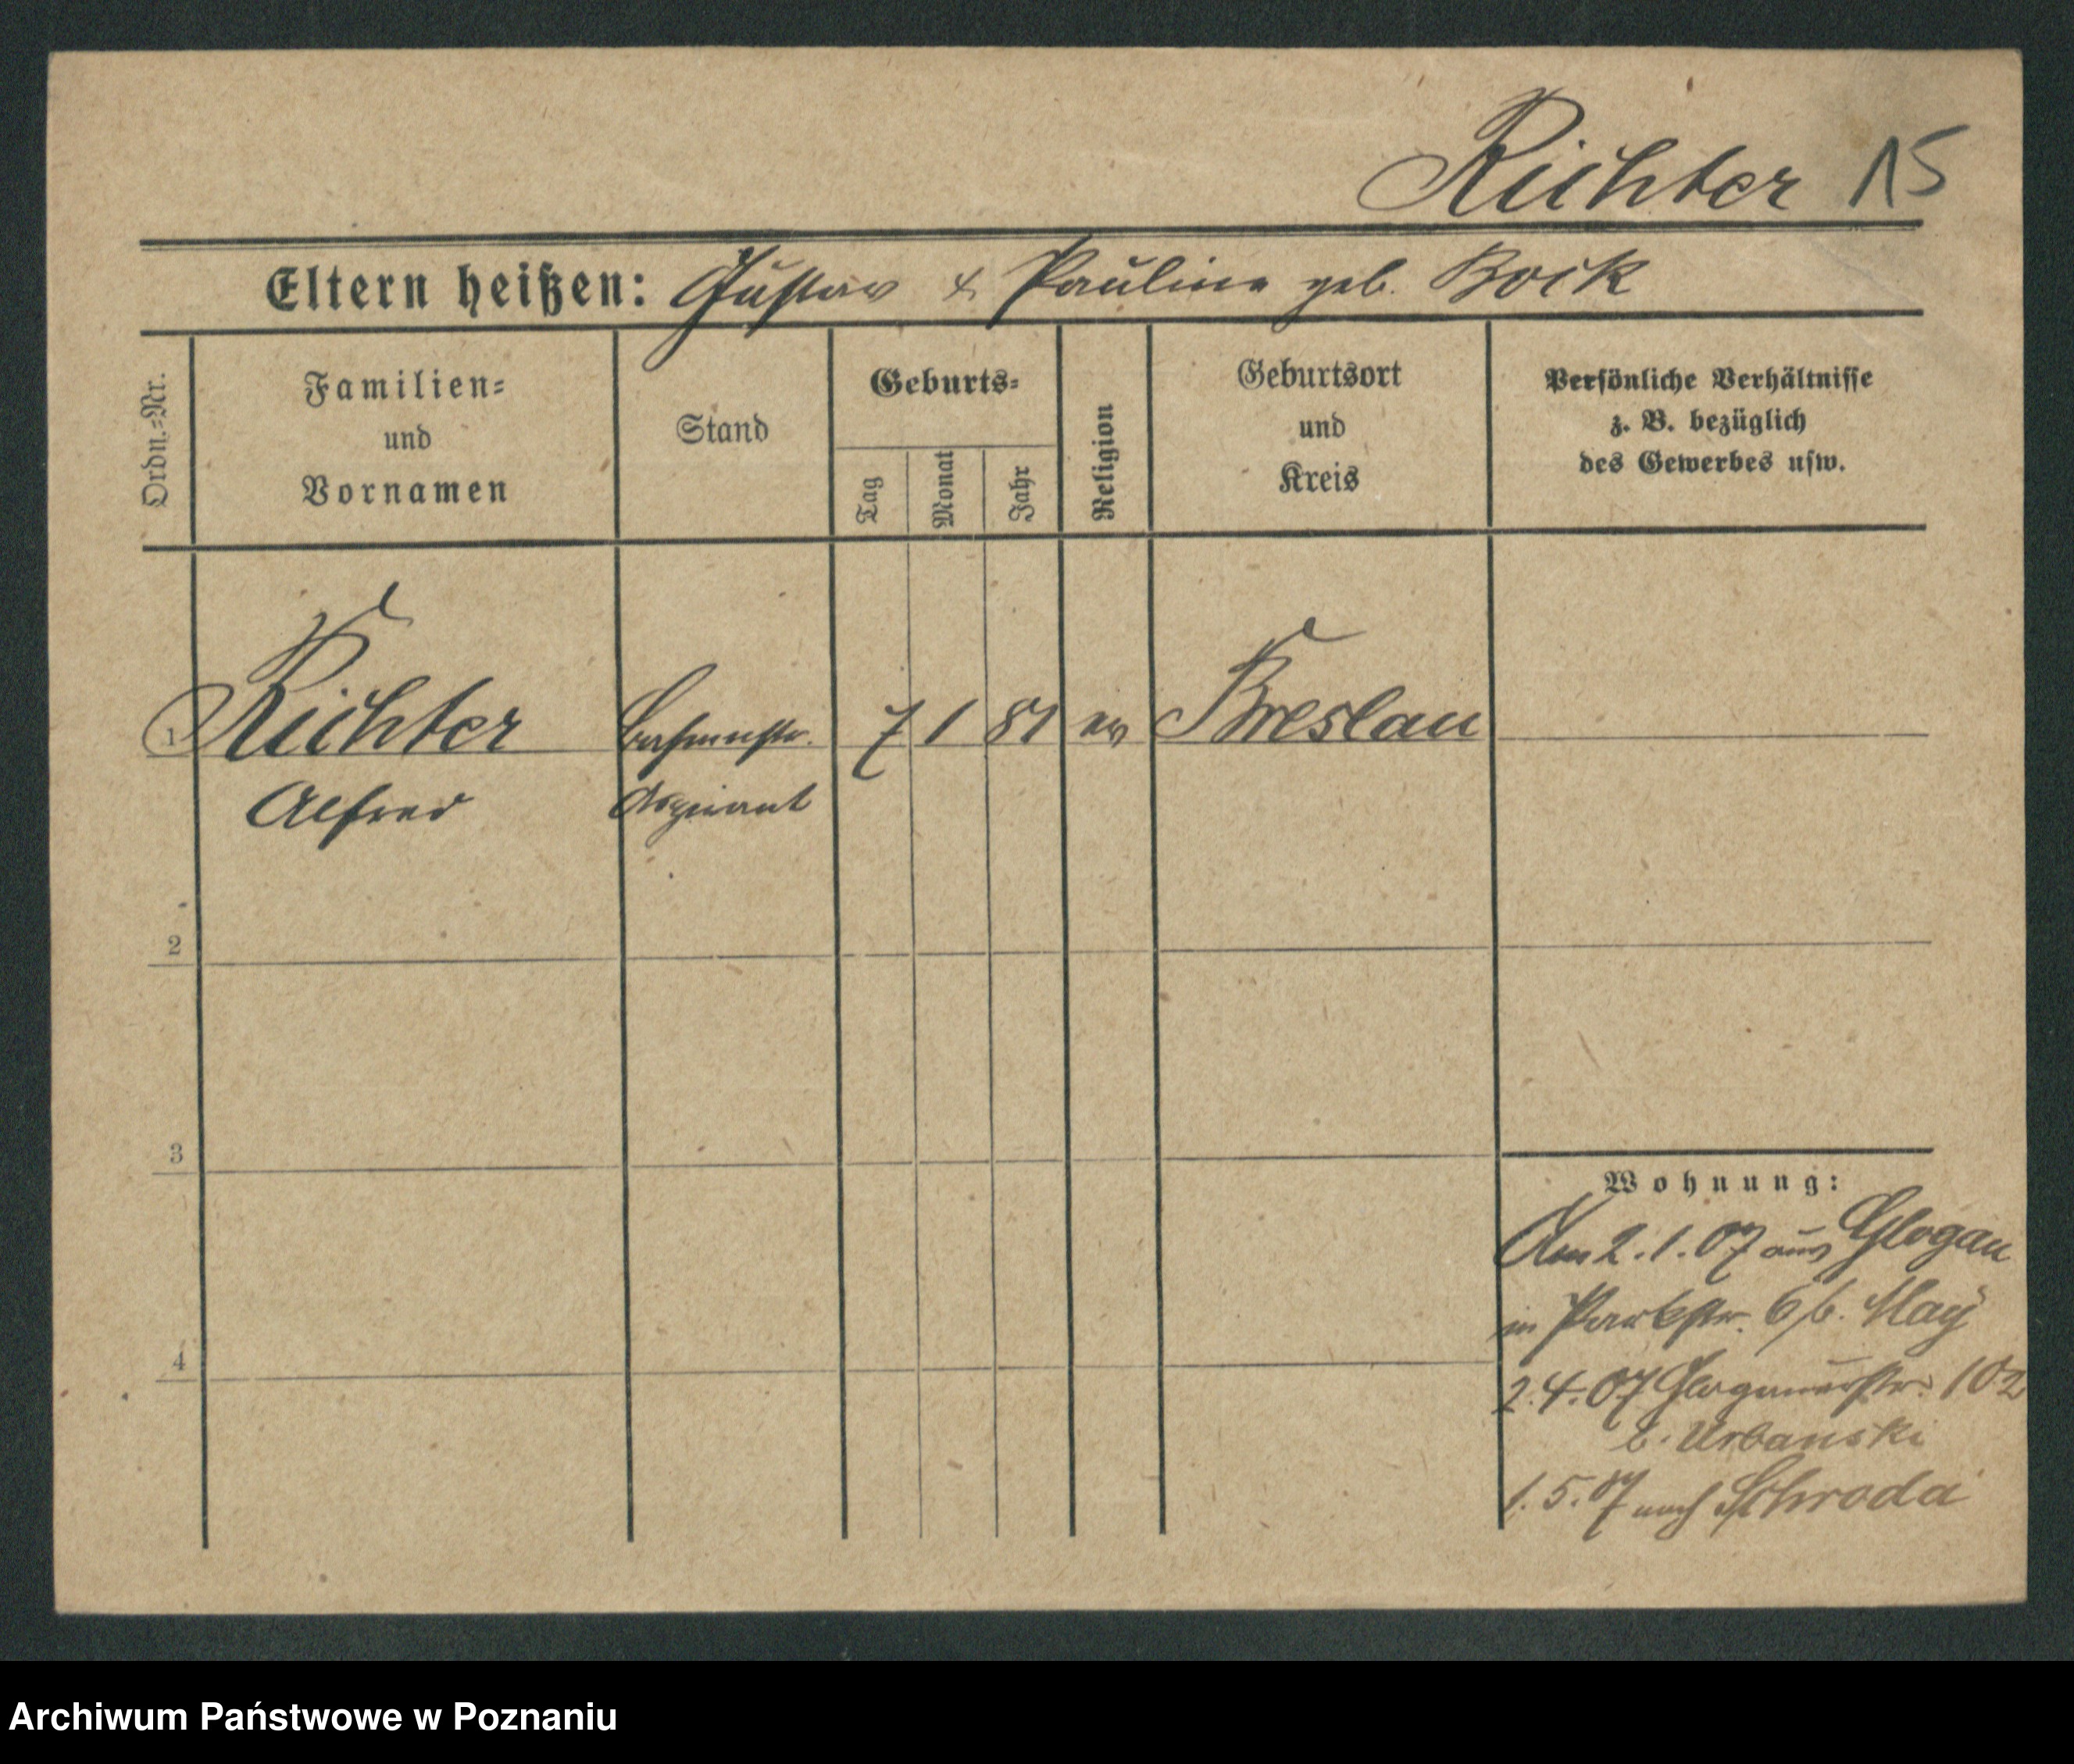 Richter 15
Eltern heißen: Gustav & Pauline geb. Bock
Ordn.-Nr.
Familien-
und
Vornamen
Stand
Geburts-
Tag
Monat
Jahr
Religion
Geburtsort
und
Kreis
Persönliche Verhältnisse
z. B. bezüglich
des Gewerbes usw.
1 Richter 7 1 81 ev Breslau
Alfred Aspirant
2
3
4
Wohnung:
Am 2.1.07 aus Glogau
in Parkstr. 6 b. May
2.4.07 Glogauerstr. 102
b. Urbanski
1.5.07 nach Schroda
Archiwum Państwowe w Poznaniu